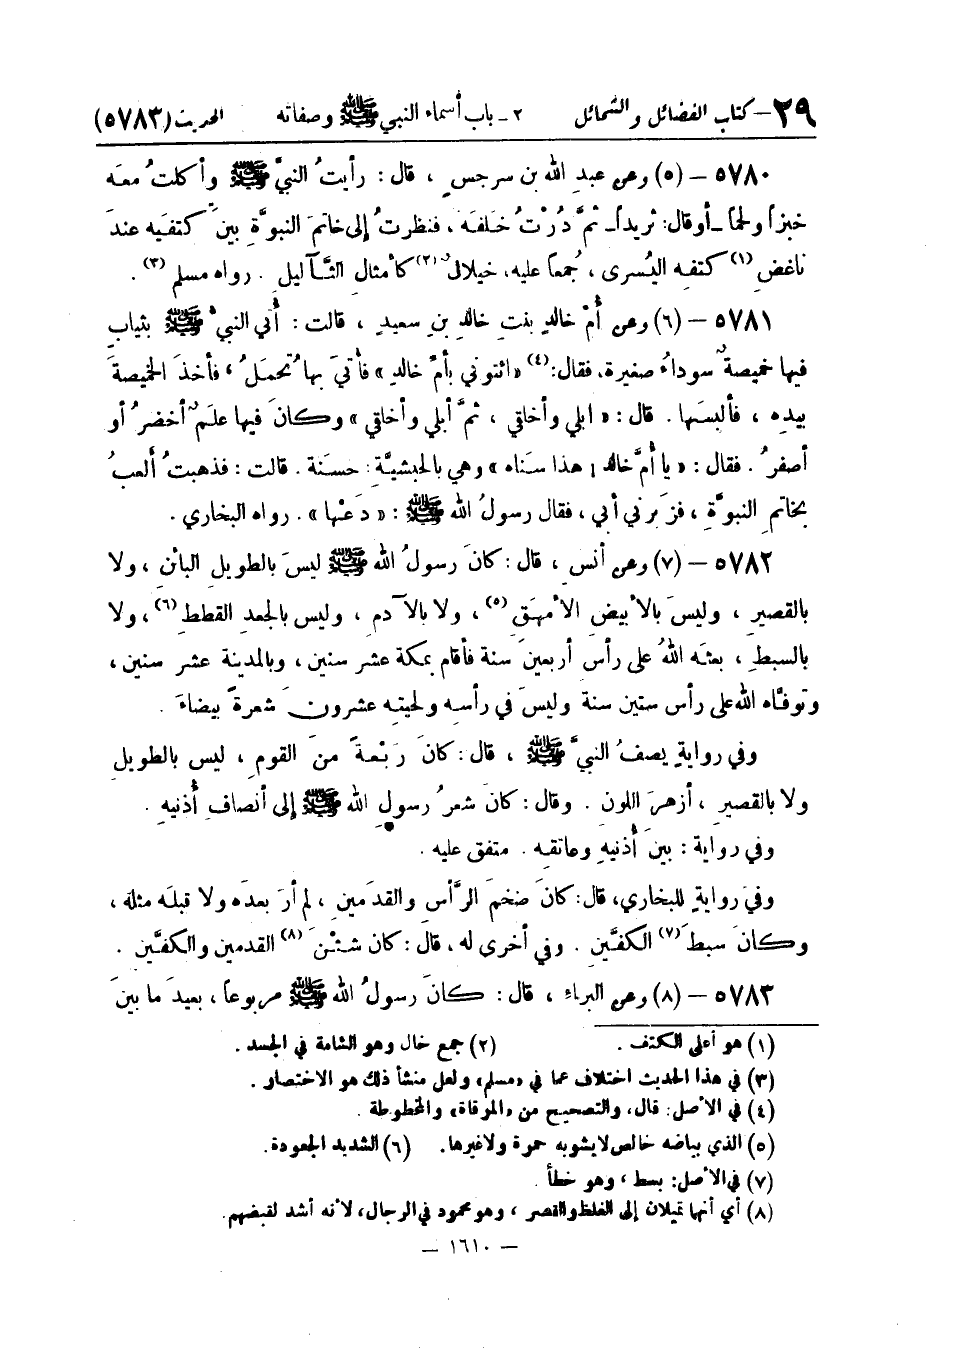 ٢٩ – كتاب الفضائل والشمائل ٢ - باب أسماء النبي ﷺ وصفاته الحديث (٥٧٨٣)
٥٧٨٠ – (٥) وعن عبدِ الله بن سرجسٍ ، قال : رأيتُ النبيَّ ﷺ وأكلتُ معَه
خبزاً ولحماً ـ أوقال : ثريداً ـ ثمَّ دُرْتُ خلفَه ، فنظرتُ إلى خاتمِ النبوَّةِ بينَ كتفيه عندَ
ناغضِ (١) كتفِه اليُسرى ، جُمعاً عليه، خيلانٌ (٢) كأمثالِ الثَّآليلِ . رواه مسلم (٣) .
٥٧٨١ – (٦) وعن أُمِّ خالدٍ بنتِ خالدِ بنِ سعيدٍ ، قالت : أُتي النبيُّ ﷺ بثيابٍ
فيها خميصةٌ سوداءُ صغيرة، فقال: (٤) « ائتوني بأمِّ خالدٍ » فأُتيَ بها تُحمَلُ ، فأخذَ الخميصةَ
بيدِه ، فألبسَها . قال : « أبلي وأخلقي ، ثمَّ أبلي وأخلقي » وكانَ فيها علَمٌ أخضرُ أو
أصفرُ . فقال : « يا أُمَّ خالد ! هذا سَناه » وهي بالحبشيَّةِ : حسَنة . قالت : فذهبتُ ألعبُ
بخاتمِ النبوَّةِ ، فزَبرني أبي ، فقال رسولُ الله ﷺ : « دَعْها » . رواه البخاري .
٥٧٨٢ – (٧) وعن أنسٍ ، قال : كانَ رسولُ الله ﷺ ليسَ بالطويلِ البائنِ ، ولا
بالقصيرِ ، وليسَ بالأبيضِ الأمهَقِ (٥) ، ولا بالآدمِ ، وليس بالجعدِ القططِ (٦) ، ولا
بالسبطِ ، بعثَه اللهُ على رأسِ أربعينَ سنة فأقام بمكة عشر سنين ، وبالمدينة عشر سنين ،
وتوفَّاه الله على رأس ستين سنة وليسَ في رأسِه ولحيتِه عشرونَ شعرةً بيضاءَ .
وفي روايةٍ يصفُ النبيَّ ﷺ ، قال : كانَ رَبْعةً منَ القومِ ، ليس بالطويلِ
ولا بالقصيرِ ، أزهرَ اللون . وقال : كانَ شعرُ رسولِ الله ﷺ إلى أنصافِ أُذنيهِ .
وفي رواية : بينَ أُذنيهِ وعاتقِه . متفق عليه .
وفي روايةٍ للبخاري، قال: كانَ ضخمَ الرَّأسِ والقدَمينِ ، لم أرَ بعدَه ولا قبلَه مثلَه ،
وكانَ سبطَ (٧) الكفَّينِ . وفي أخرى له ، قال : كان شثْنَ (٨) القدمينِ والكفَّينِ .
٥٧٨٣ – (٨) وعن البراءِ ، قال : كانَ رسولُ الله ﷺ مربوعاً ، بعيدَ ما بينَ
(١) هو أعلى الكتف . (٢) جمع خال وهو الشامة في الجسد .
(٣) في هذا الحديث اختلاف عما في «مسلم» ولعل منشأ ذلك هو الاختصار .
(٤) في الأصل: قال، والتصحيح من «المرقاة» والمخطوطة .
(٥) الذي بياضه خالص لا يشوبه حمرة ولا غيرها. (٦) الشديد الجعودة.
(٧) في الأصل: بسط ، وهو خطأ .
(٨) أي أنها تميلان إلى الغلظ والقصر ، وهو محمود في الرجال، لأنه أشد لقبضهم.
– ١٦١٠ –